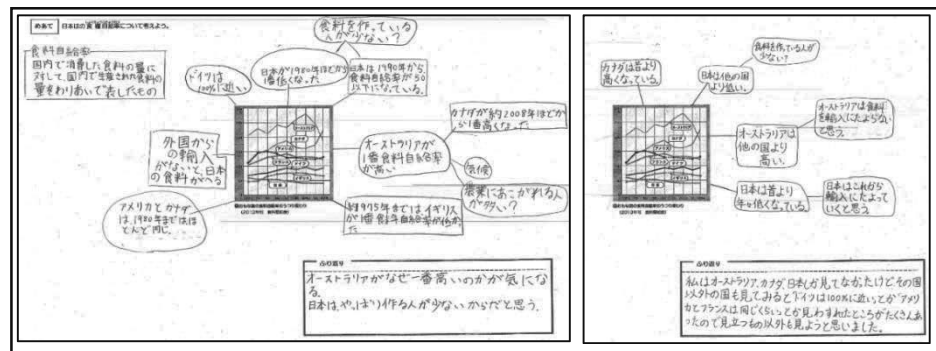 めあて 日本はの食糧自給率について考えよう。
食料自給率
国内で消費した食料の量に
対して、国内で生産された食料の
量をわりあいで表したもの
ドイツは
100%に近い。
日本が1980年ほどから
1番低くなった
食料を作っている
人が少ない?
日本は1990年から
食料自給率が50
以下になっている。
カナダが約2008年ほどか
ら1番高くなった
オーストラリアが
1番食料自給率
が高い
気候
農業にあこがれる人
が多い?
外国から
の輸入
がないと、日本
の食料がへる
アメリカとカナダ
は、1980年まではほ
とんど同じ。
約1975年まではイギリス
が1番食料自給率が低かっ
た
ふり返り
オーストラリアがなぜ一番高いのかが気にな
る。
日本は、やっぱり作る人が少ないからだと思う。
カナダは昔より
高くなっている。
食料を作っている人が
少ない?
日本は他の国
より低い。
オーストラリアは食料
を輸入にたよらない
と思う
オーストラリアは
他の国より
高い。
日本は昔より
年々低くなっている。
日本はこれから
輸入にたよって
いくと思う
ふり返り
私はオーストラリア、カナダ、日本しか見てなかったけどその国
以外の国も見てみるとドイツは100%に近いとか、アメリ
カとフランスは同じくらいとか見わすれたところがたくさんあ
ったので見立つもの以外も見ようと思いました。